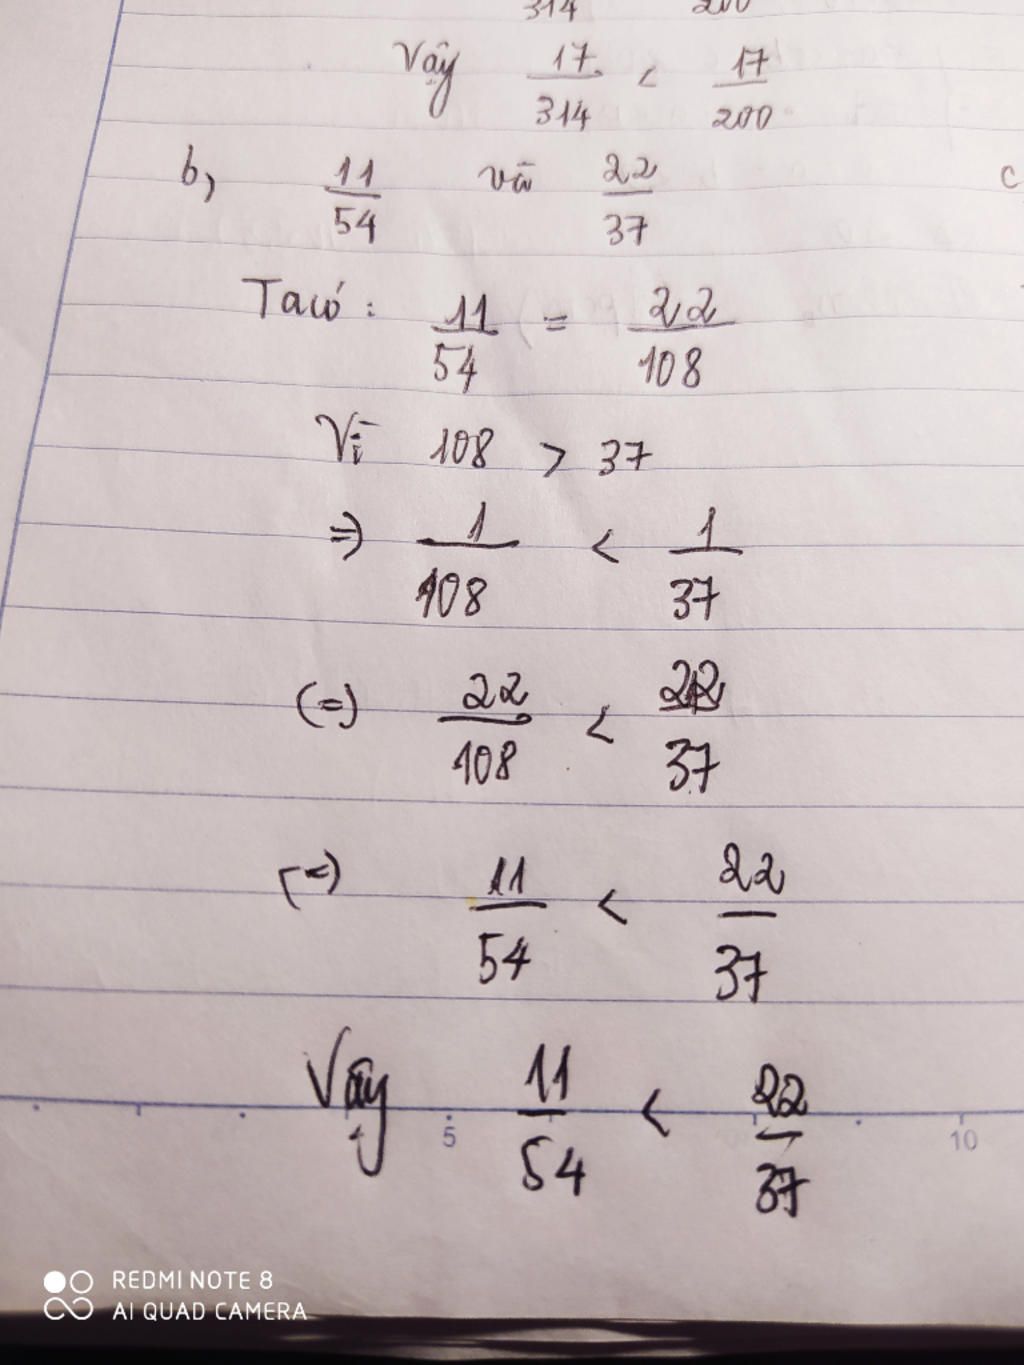 314 200
Vậy 17/314 < 17/200
b, 11/54 và 22/37 c
Ta có: 11/54 = 22/108
Vì 108 > 37
=> 1/108 < 1/37
(=) 22/108 < 22/37
=) 11/54 < 22/37
Vậy 11/54 < 22/37
5 10
REDMI NOTE 8
AI QUAD CAMERA